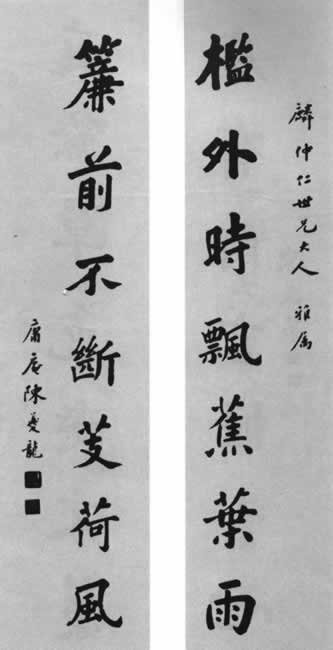 麟仲仁世兄大人 雅属
檻外時飄蕉葉雨
簾前不斷芰荷風
庸庵陳夔龍